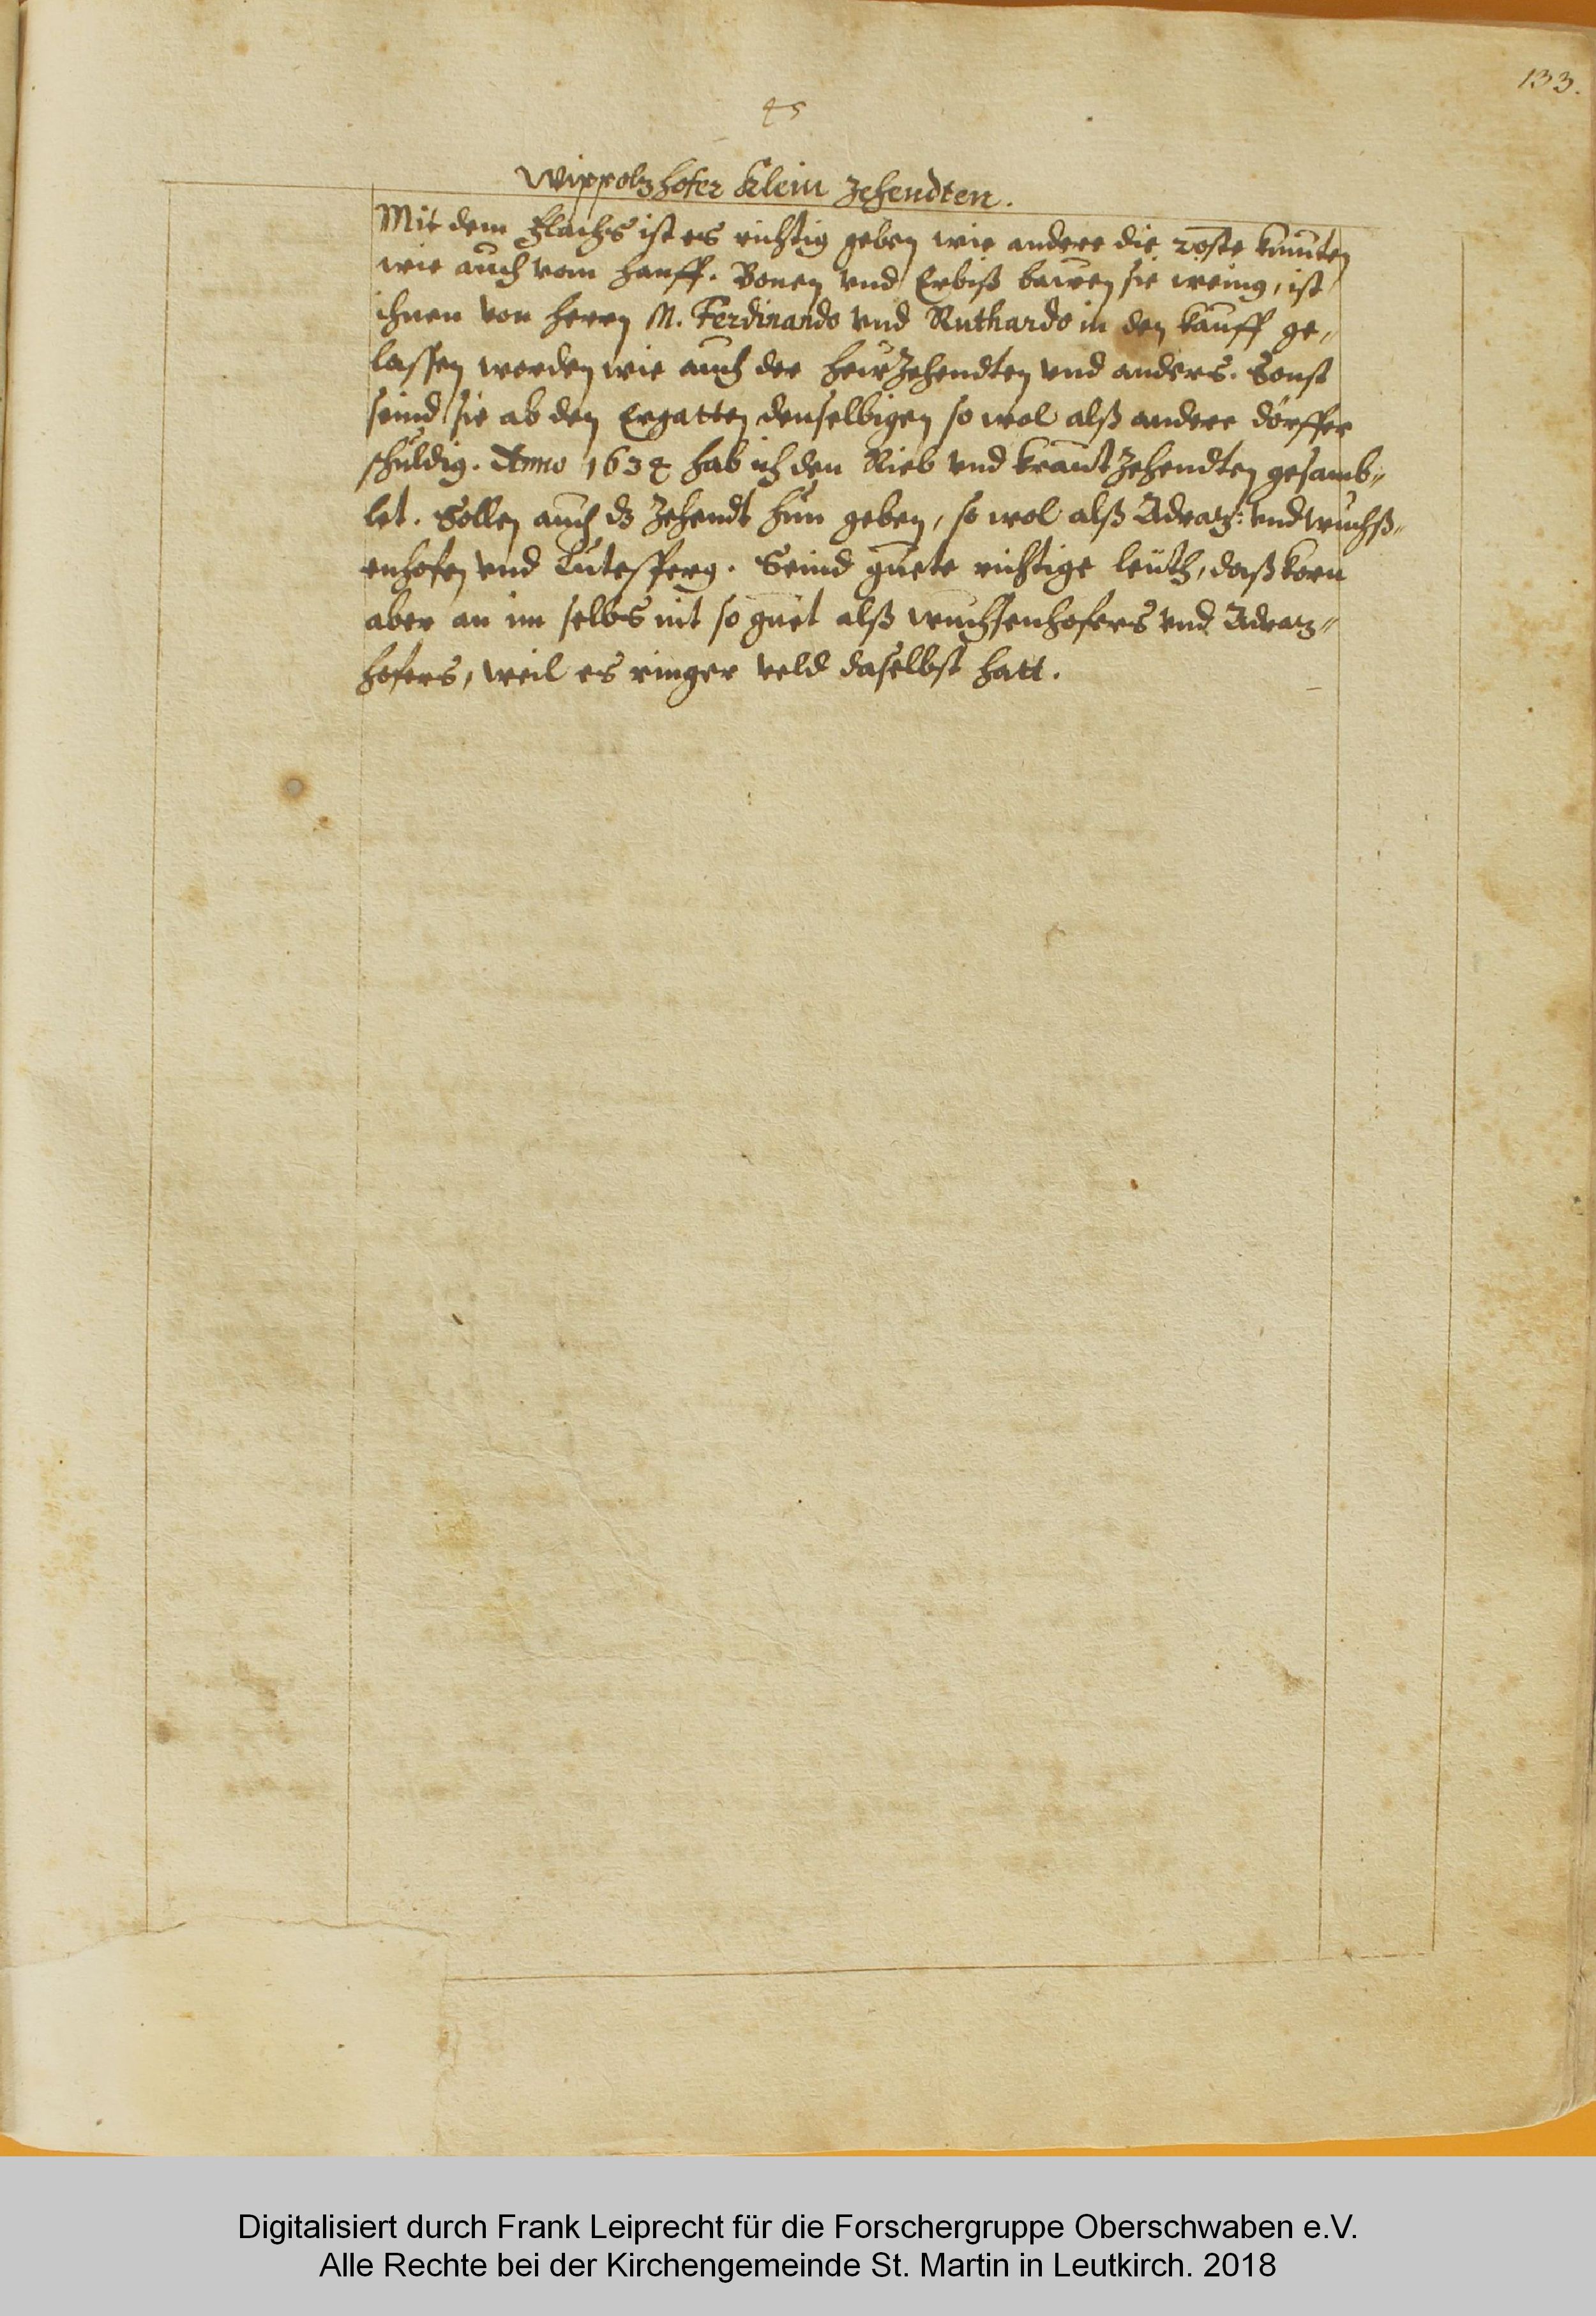 133.
45
Wippolzhofer Klein Zehendten.
Mit dem Flachs ist es richtig geben wie andere die 20ste knauten
wie auch vom Hanff. Bonen vnd Erbiß bawen sie wenig, ist
ihnen von Herren M. Ferdinando vnd Ruthardo in den kauff ge„
lassen worden wie auch der Hew Zehendten vnd anders. Sonst
seind sie ab den Ergatten denselbigen so wol alß andere dörffer
schuldig. Anno 1634 hab ich den Rieb vnd kraut Zehendten gesamb„
let. Sollen auch dz Zehendt hun geben, so wol alß Adraz: vnd wuchß„
enhofen vnd Lutesperg. Seind guete richtige leüth, daß korn
aber an im selbs nit so guet alß wuchsenhofers vnd Adraz„
hofers, weil es ringer veld daselbst hatt.
Digitalisiert durch Frank Leiprecht für die Forschergruppe Oberschwaben e.V.
Alle Rechte bei der Kirchengemeinde St. Martin in Leutkirch. 2018